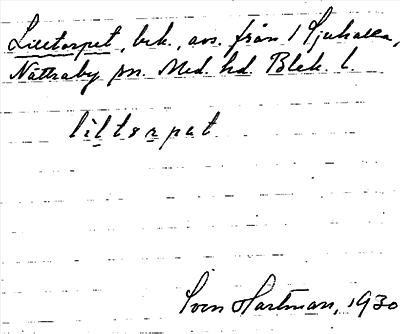 Lilletorpet, bek., avs. från 1 Sjuhalla,
Nättraby sn. Med. hd. Blek. l
liltorpat
Sven Hartman, 1930